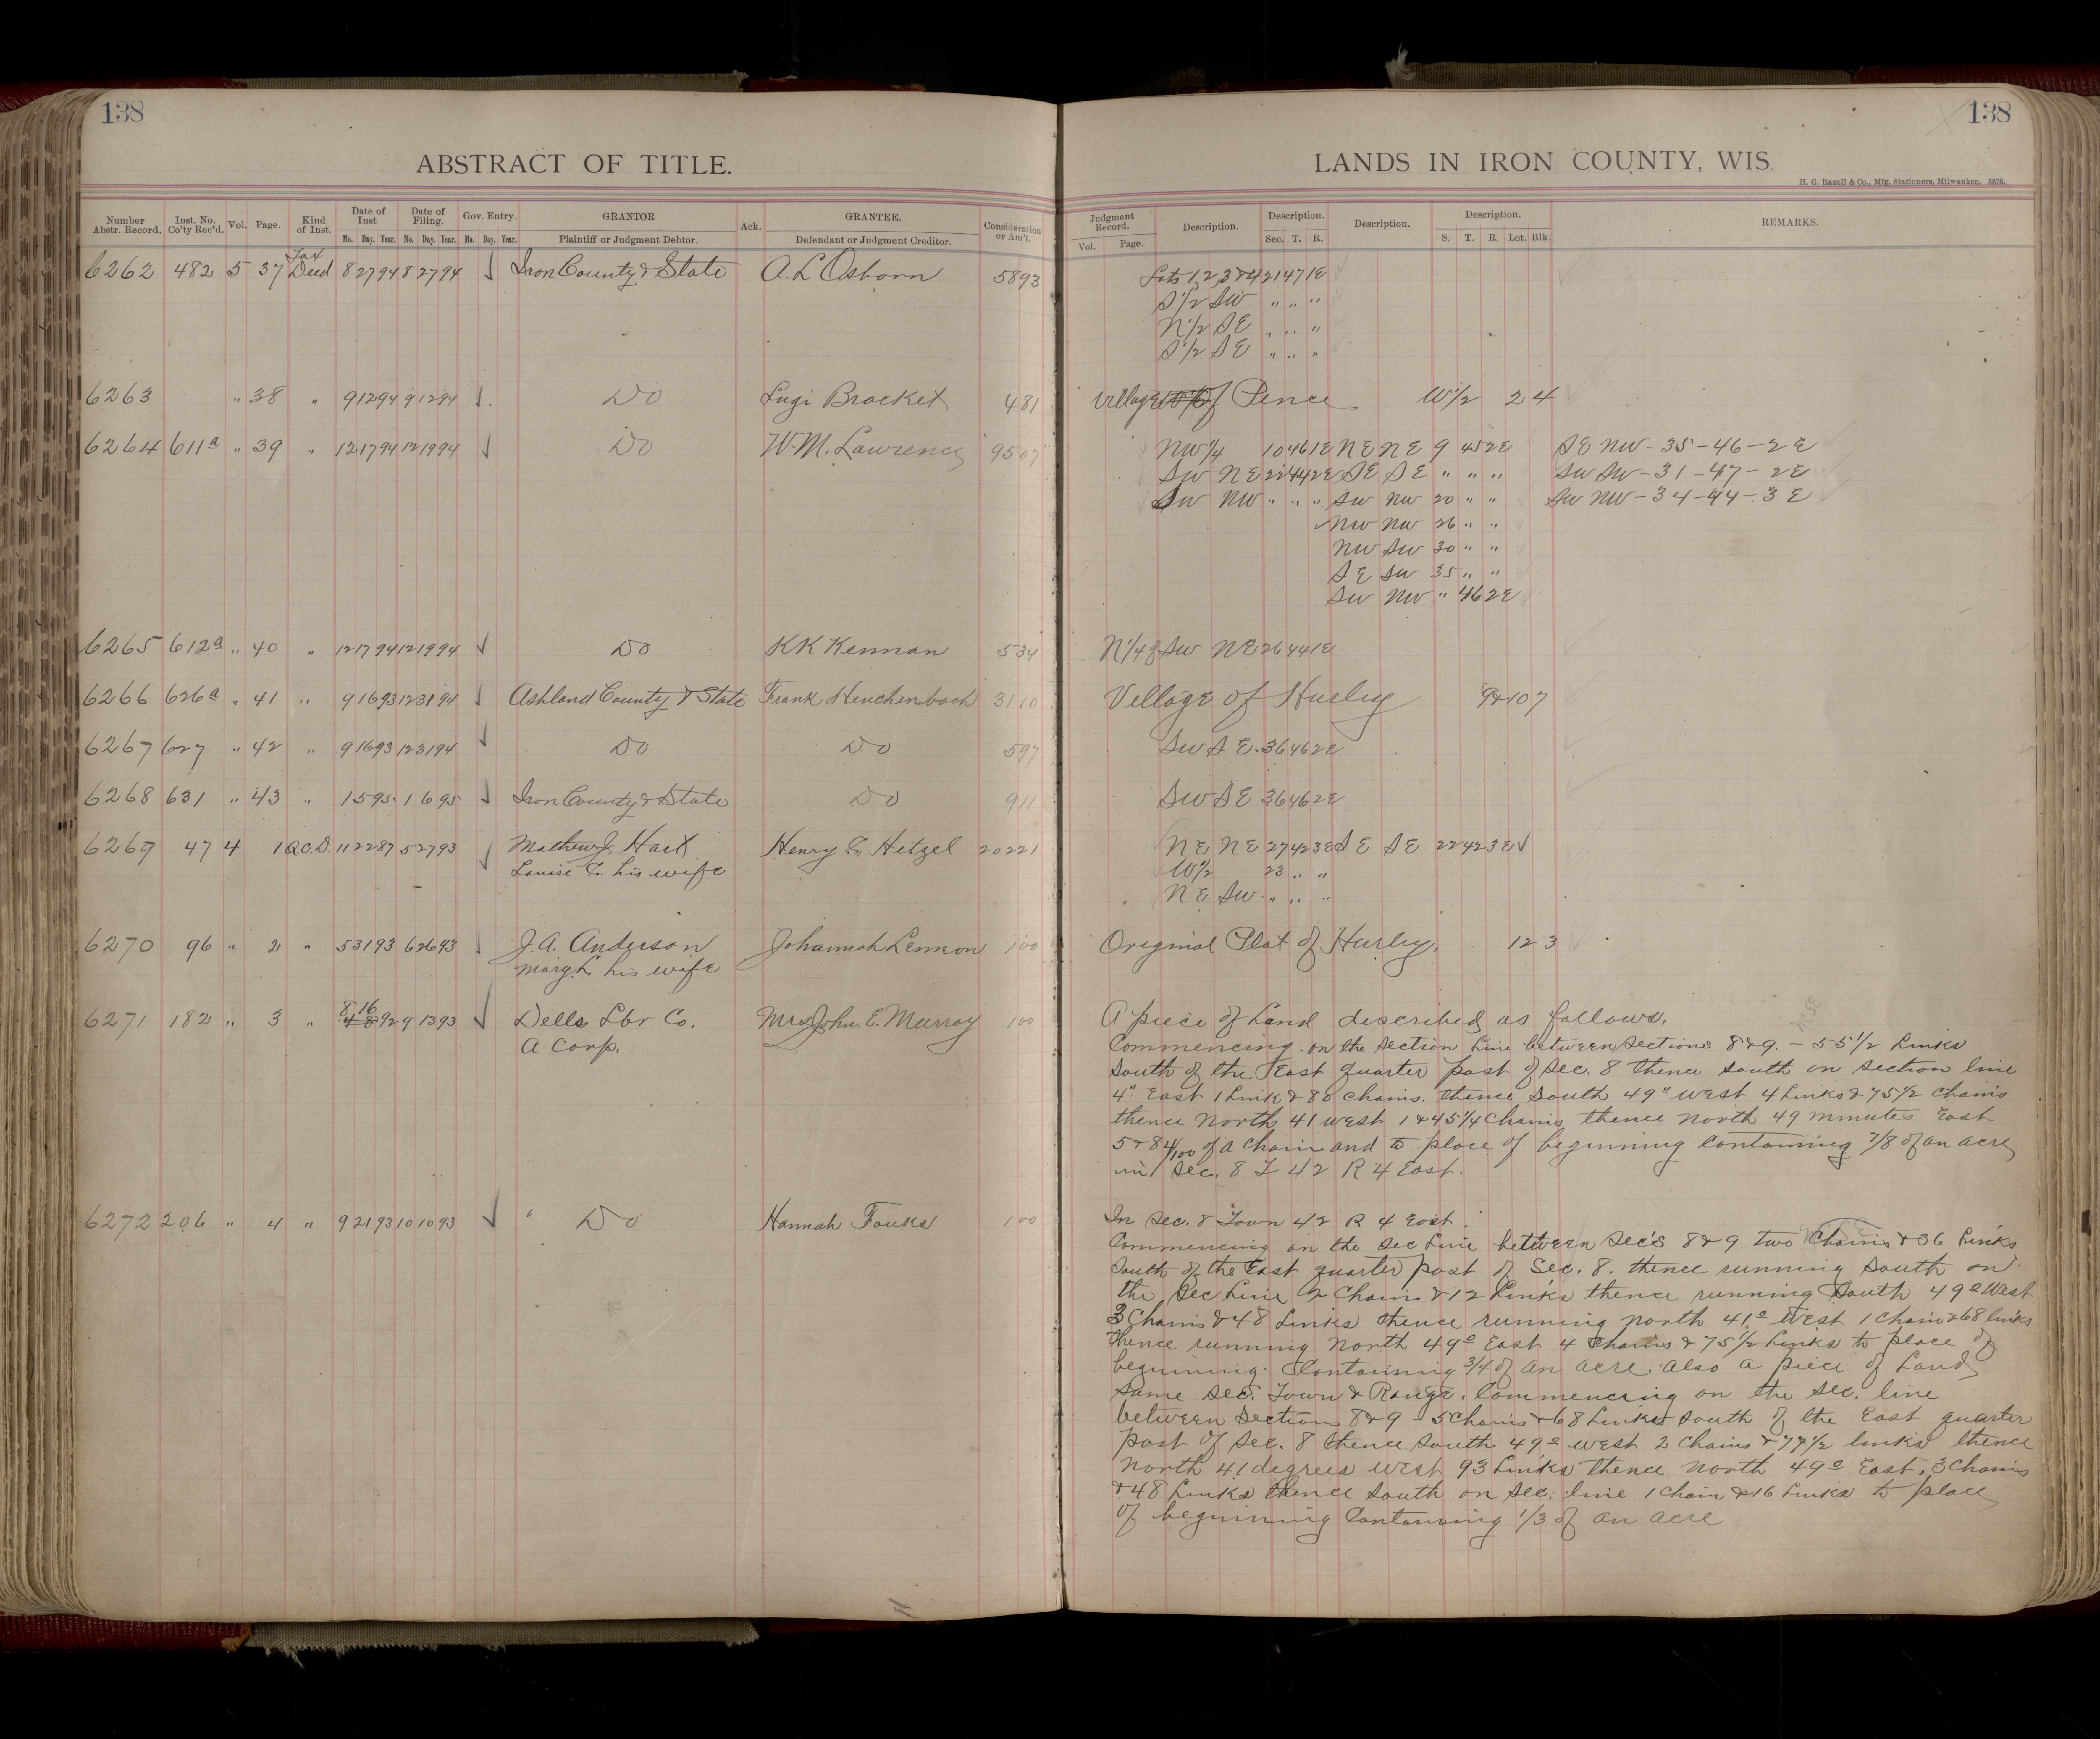 138
138
ABSTRACT OF TITLE.
LANDS IN IRON COUNTY, WIS.
H. G. Razall & Co., Mfg. Stationers, Milwaukee. 5876.
Number Abstr. Record. Inst. No. Co'ty Rec'd. Vol. Page. Kind of Inst. Date of Inst Date of Filing. Gov. Entry. GRANTOR Ack. GRANTEE. Consideration or Am't. Judgment Record. Description. Description. Description. Description. REMARKS.
Mo. Day. Year. Mo. Day. Year. Mo. Day. Year. Plaintiff or Judgment Debtor. Defendant or Judgment Creditor. Vol. Page. Sec. T. R. S. T. R. Lot. Blk.
6262 482 5 37 Tax Deed 8 27 94 8 27 94 ✓ Iron County & State A. L Osborn 5893 Lots 1, 2, 3 & 4 21 47 1E
S 1/2 SW " " "
N 1/2 SE " " "
S 1/2 SE " " "
6263 " 38 " 9 12 94 9 12 94 ✓ Do Lugi Bracket 481 Village of Pence W 1/2 2 4
6264 611a " 39 " 12 17 94 12 19 94 ✓ Do W. M. Lawrence 9507 NW 1/4 10 46 1E NE NE 9 45 2E SE NW - 35 - 46 - 2E
SW NE 22 44 2E SE SE " " " SW SW - 31 - 47 - 2E
SW NW " " " SW NW 20 " " SW NW - 34 - 44 - 3E
NW NW 26 " "
NW SW 30 " "
SE SW 35 " "
SW NW " 46 2E
6265 612a " 40 " 12 17 94 12 19 94 ✓ Do KK Kennan 534 N 1/4 of SW NE 26 44 1E
6266 626a " 41 " 9 16 93 12 31 94 ✓ Ashland County & State Frank Heuchenbach 3110 Village of Hurley 9&10 7
6267 627 " 42 " 9 16 93 12 31 94 ✓ Do Do 597 SW SE 36 46 2E
6268 631 " 43 " 1 5 95 1 6 95 ✓ Iron County & State Do 911 SW SE 36 46 2E
6269 47 4 1 Q.C.D. 11 22 87 5 27 93 ✓ Mathew J. Hart Henry C. Hetzel 20221 NE NE 27 42 3E SE SE 22 42 3E ✓
Louise C. his wife W 1/2 23 " "
NE SW " " "
6270 96 " 2 " 5 31 93 6 26 93 ✓ J. A. Anderson Johannah Lennon 100 Original Plat of Hurley. 12 3
Mary L his wife
6271 182 " 3 " 8 16 92 9 13 93 ✓ Dells Lbr Co. Mrs John. E. Murray 100 A piece of Land described as follows.
A Corp.
Commencing on the Section Line between Sections 8 & 9. - 55 1/2 Links
South of the East quarter post of Sec. 8 thence South on section line
4" East 1 Link & 80 Chains. thence South 49" West 4 Links & 75 1/2 Chains
thence North 41 west 1 & 45 1/4 Chains thence North 49 minutes East
5 & 84/100 of a chain and to place of beginning Containing 7/8 of an acre
in Sec. 8 T 42 R 4 East.
6272 206 " 4 " 9 21 93 10 10 93 ✓ " Do Hannah Fouks 100 In Sec. 8 Town 42 R 4 East.
Commencing on the Sec Line between Sec's 8 & 9 two Chains & 36 Links
South of the East quarter post of Sec. 8. thence running South on
the Sec Line 2 Chains & 12 Links thence running South 49° West
3 Chains & 48 Links thence running north 41° West 1 Chain & 68 links
thence running North 49° East 4 Chains & 75 1/2 Links to place of
beginning. Containing 3/4 of an acre. also a piece of Land
same Sec. Town & Range. Commencing on the Sec. line
between Sections 8 & 9 - 5 Chains & 68 Links South of the East quarter
post of Sec. 8 thence South 49° west 2 Chains & 77 1/2 links thence
North 41 degrees west 93 Links thence North 49° East, 3 Chains
& 48 Links thence South on Sec. line 1 Chain & 16 Links to place
of beginning Containing 1/3 of an acre